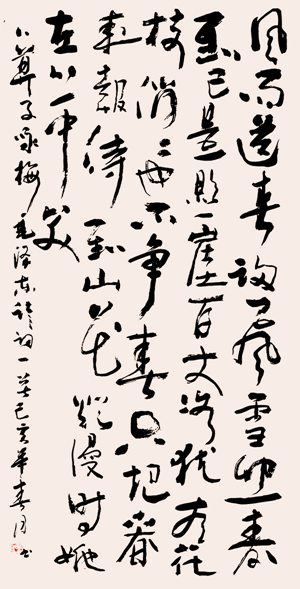 風雨送春歸飛雪迎春
到已是懸崖百丈冰猶有花
枝俏々也不争春只把春
来報待到山花爛漫時她
在丛中笑
卜算子咏梅毛泽东诗词一首己亥年春月书